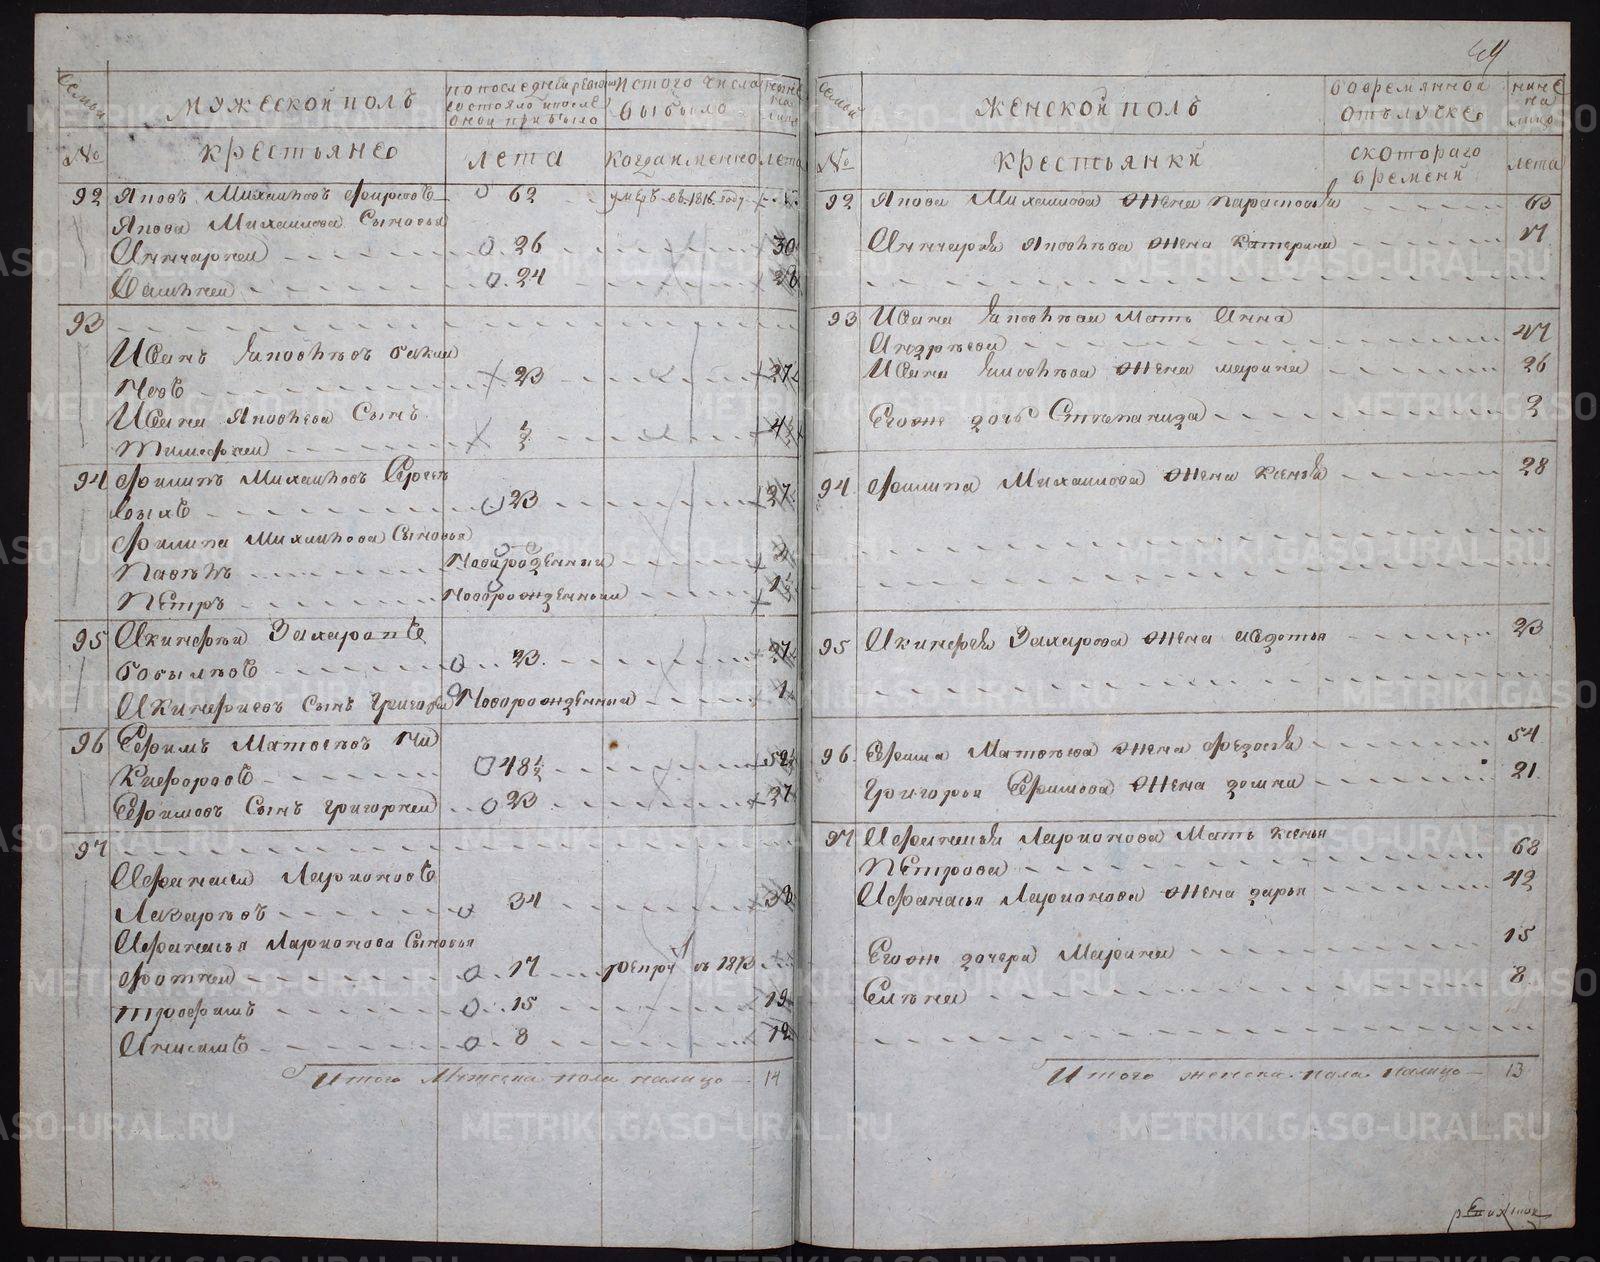 49
Семьи
Мужеской полъ
по последней ревизии
состояло и после
оной прибыло
Истого числа
выбыло
ныне
на
лицо
№
Крестьяне
лета
когда именно
лета
92 Яковъ Михаиловъ Фирсовъ 62 умеръ въ 1816 году
Якова Михаилова Сыновья
26 30
24 28
93
Иванъ
23 27
Ивана Сынъ
Тимофей ½ 4½
94 Филипъ Михаиловъ
23 27
Филипа Михаилова Сыновья
Павелъ Новорожденный
Петръ Новорожденный 1½
95 Акинфий Захаровъ
Бобылевъ 23 27
Акинфиевъ Сынъ Григорий Новорожденный 1
96 Ефимъ Матвеевъ Ни
кифоровъ 48½ 52½
Ефимовъ Сынъ Григорий 23 27
97
Афанасий Ларионовъ
Лазаревъ 34 38
Афанасья Ларионова Сыновья
Фотий 17 рекру въ 1813
Трофимъ 15 19
Анисимъ 8 12
Итого Мужеска пола налицо 14
Семьи
Женской полъ
Вовремянной
отълучке
ныне
на
лицо
№
Крестьянки
с котораго
времени
лета
92 Якова Михаилова жена Парасковья 65
жена Катерина
93 Ивана Мать Анна
Андреева 47
Ивана жена Марина 26
Егоже дочь Степанида 2
94 Филипа Михаилова жена Ксенья 28
95 Акинфея Захарова жена Авдотья 23
96 Ефима Матвеева жена Федосья 54
Григорья Ефимова жена Домна 21
97 Афанасья Ларионова Мать Ксенья
Петрова 68
Афанасья Ларионова жена Дарья 42
Егоже дочери Марина 15
Елена 8
Итого женска пола налицо 13
METRIKI.GASO-URAL.RU